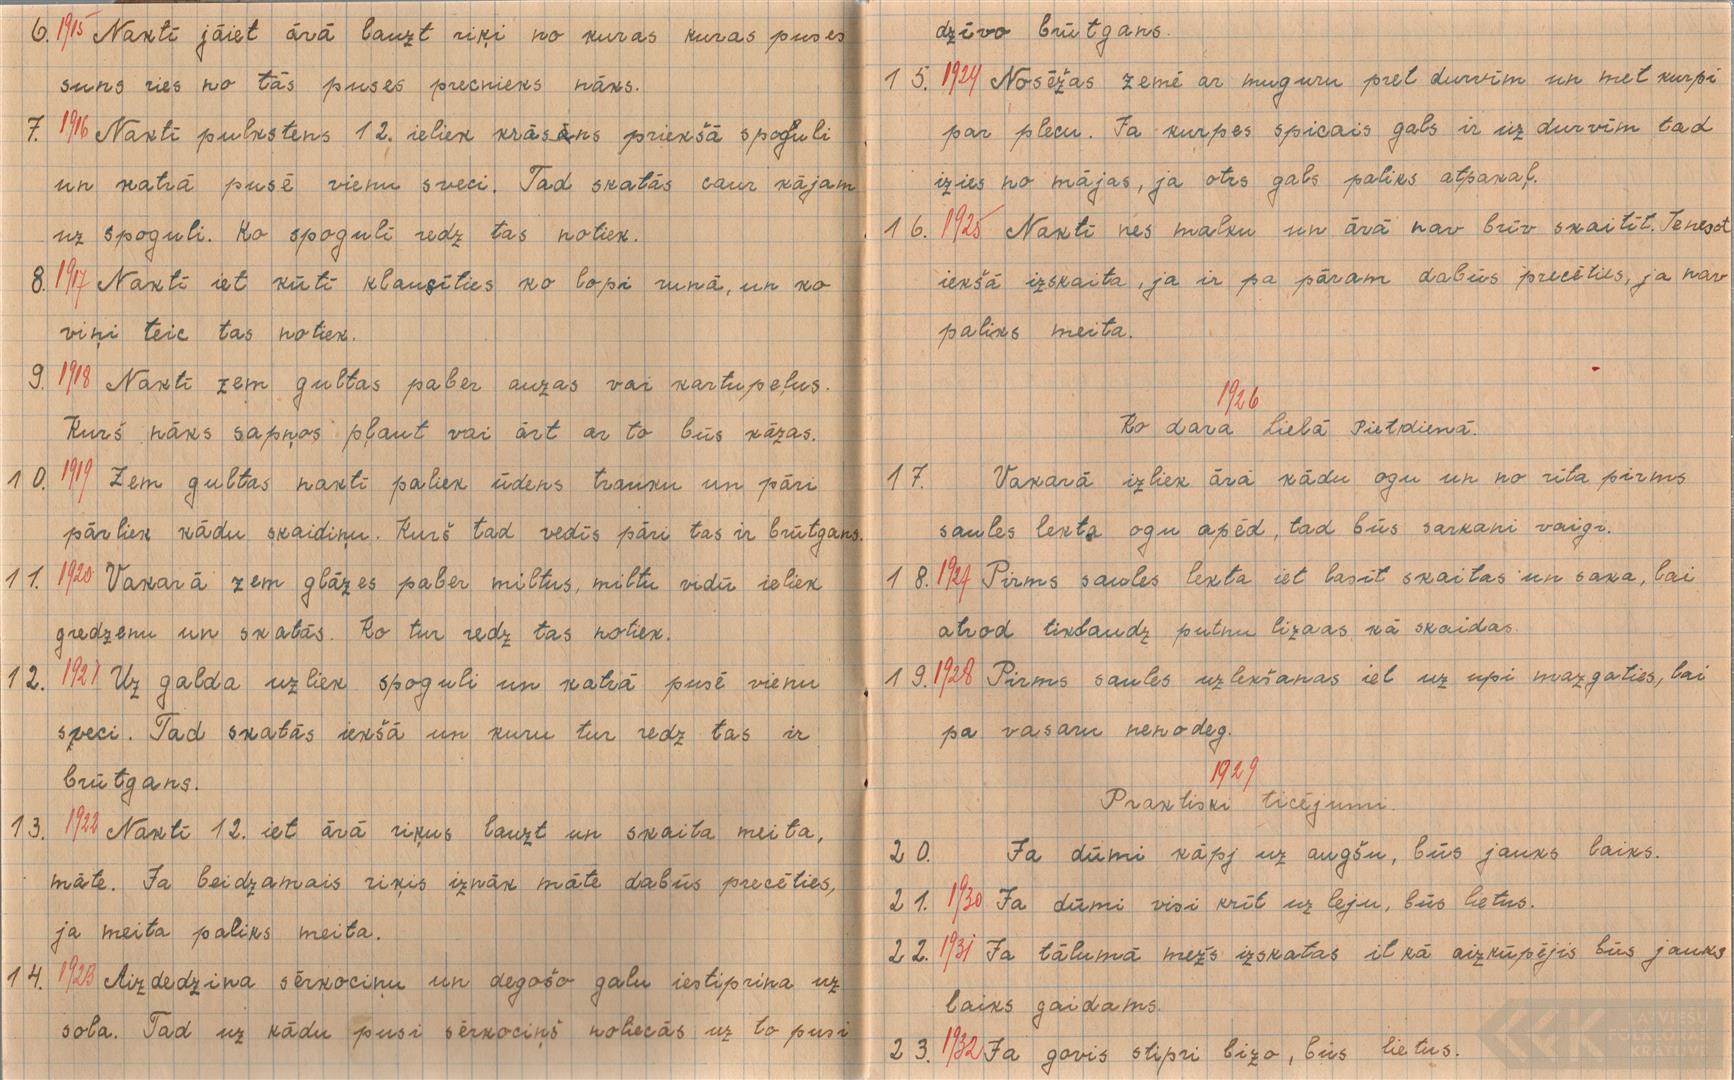 6. 1915 Naktī jāiet ārā lauzt riķi no kuras kuras puses
suns ries no tās puses precnieks nāks.
7. 1916 Naktī pulkstens 12. ieliek krāsāns priekšā spoguli
un katrā pusē vienu sveci. Tad skatās caur kājam
uz spoguli. Ko spogulī redz tas notiek.
8. 1917 Naktī iet kūtī klausīties ko lopi runā, un ko
viņi teic tas notiek.
9. 1918 Naktī zem gultas paber auzas vai kartupeļus.
Kurš nāks sapņos pļaut vai ārt ar to būs kāzas.
10. 1919 Zem gultas naktī paliek ūdens trauku un pāri
pārliek kādu skaidiņu. Kurš tad vedīs pāri tas ir brūtgans.
11. 1920 Vakarā zem glāzes paber miltus, miltu vidū ieliek
gredzenu un skatās. Ko tur redz tas notiek.
12. 1921 Uz galda uzliek spoguli un katrā pusē vienu
sveci. Tad skatās iekšā un kuru tur redz tas ir
brūtgans.
13. 1922 Naktī 12. iet ārā riķus lauzt un skaita meita,
māte. Ja beidzamais riķis iznāk māte dabūs precēties,
ja meita paliks meita.
14. 1923 Aizdedzina sērkociņu un degošo galu iestiprina uz
sola. Tad uz kādu pusi sērkociņš noliecās uz to pusi
dzīvo brūtgans.
15. 1924 Nosēžas zemē ar muguru pret durvīm un met kurpi
par plecu. Ja kurpes spicais gals ir uz durvīm tad
izies no mājas, ja otrs gals paliks atpakaļ.
16. 1925 Naktī nes malku un ārā nav brīv skaitīt. Ienesot
iekšā izskaita, ja ir pa pāram dabūs precēties, ja nav
paliks meita.
1926
Ko dara lielā Pietdienā.
17. Vakarā izliek ārā kādu ogu un no rīta pirms
saules lekta ogu apēd, tad būs sarkani vaigi.
18. 1927 Pirms saules lekta iet lasīt skaitas un saka, lai
atrod tikdaudz putnu lizdas kā skaidas.
19. 1928 Pirms saules uzlekšanas iet uz upi mazgaties, lai
pa vasaru nenodeg.
1929
Praktiski ticējumi.
20. Ja dūmi kāpj uz augšu, būs jauks laiks.
21. 1930 Ja dūmi visi krīt uz leju, būs lietus.
22. 1931 Ja tālumā mežs izskatas it kā aizkūpējis būs jauks
laiks gaidams.
23. 1932 Ja govis stipri bizo, būs lietus.